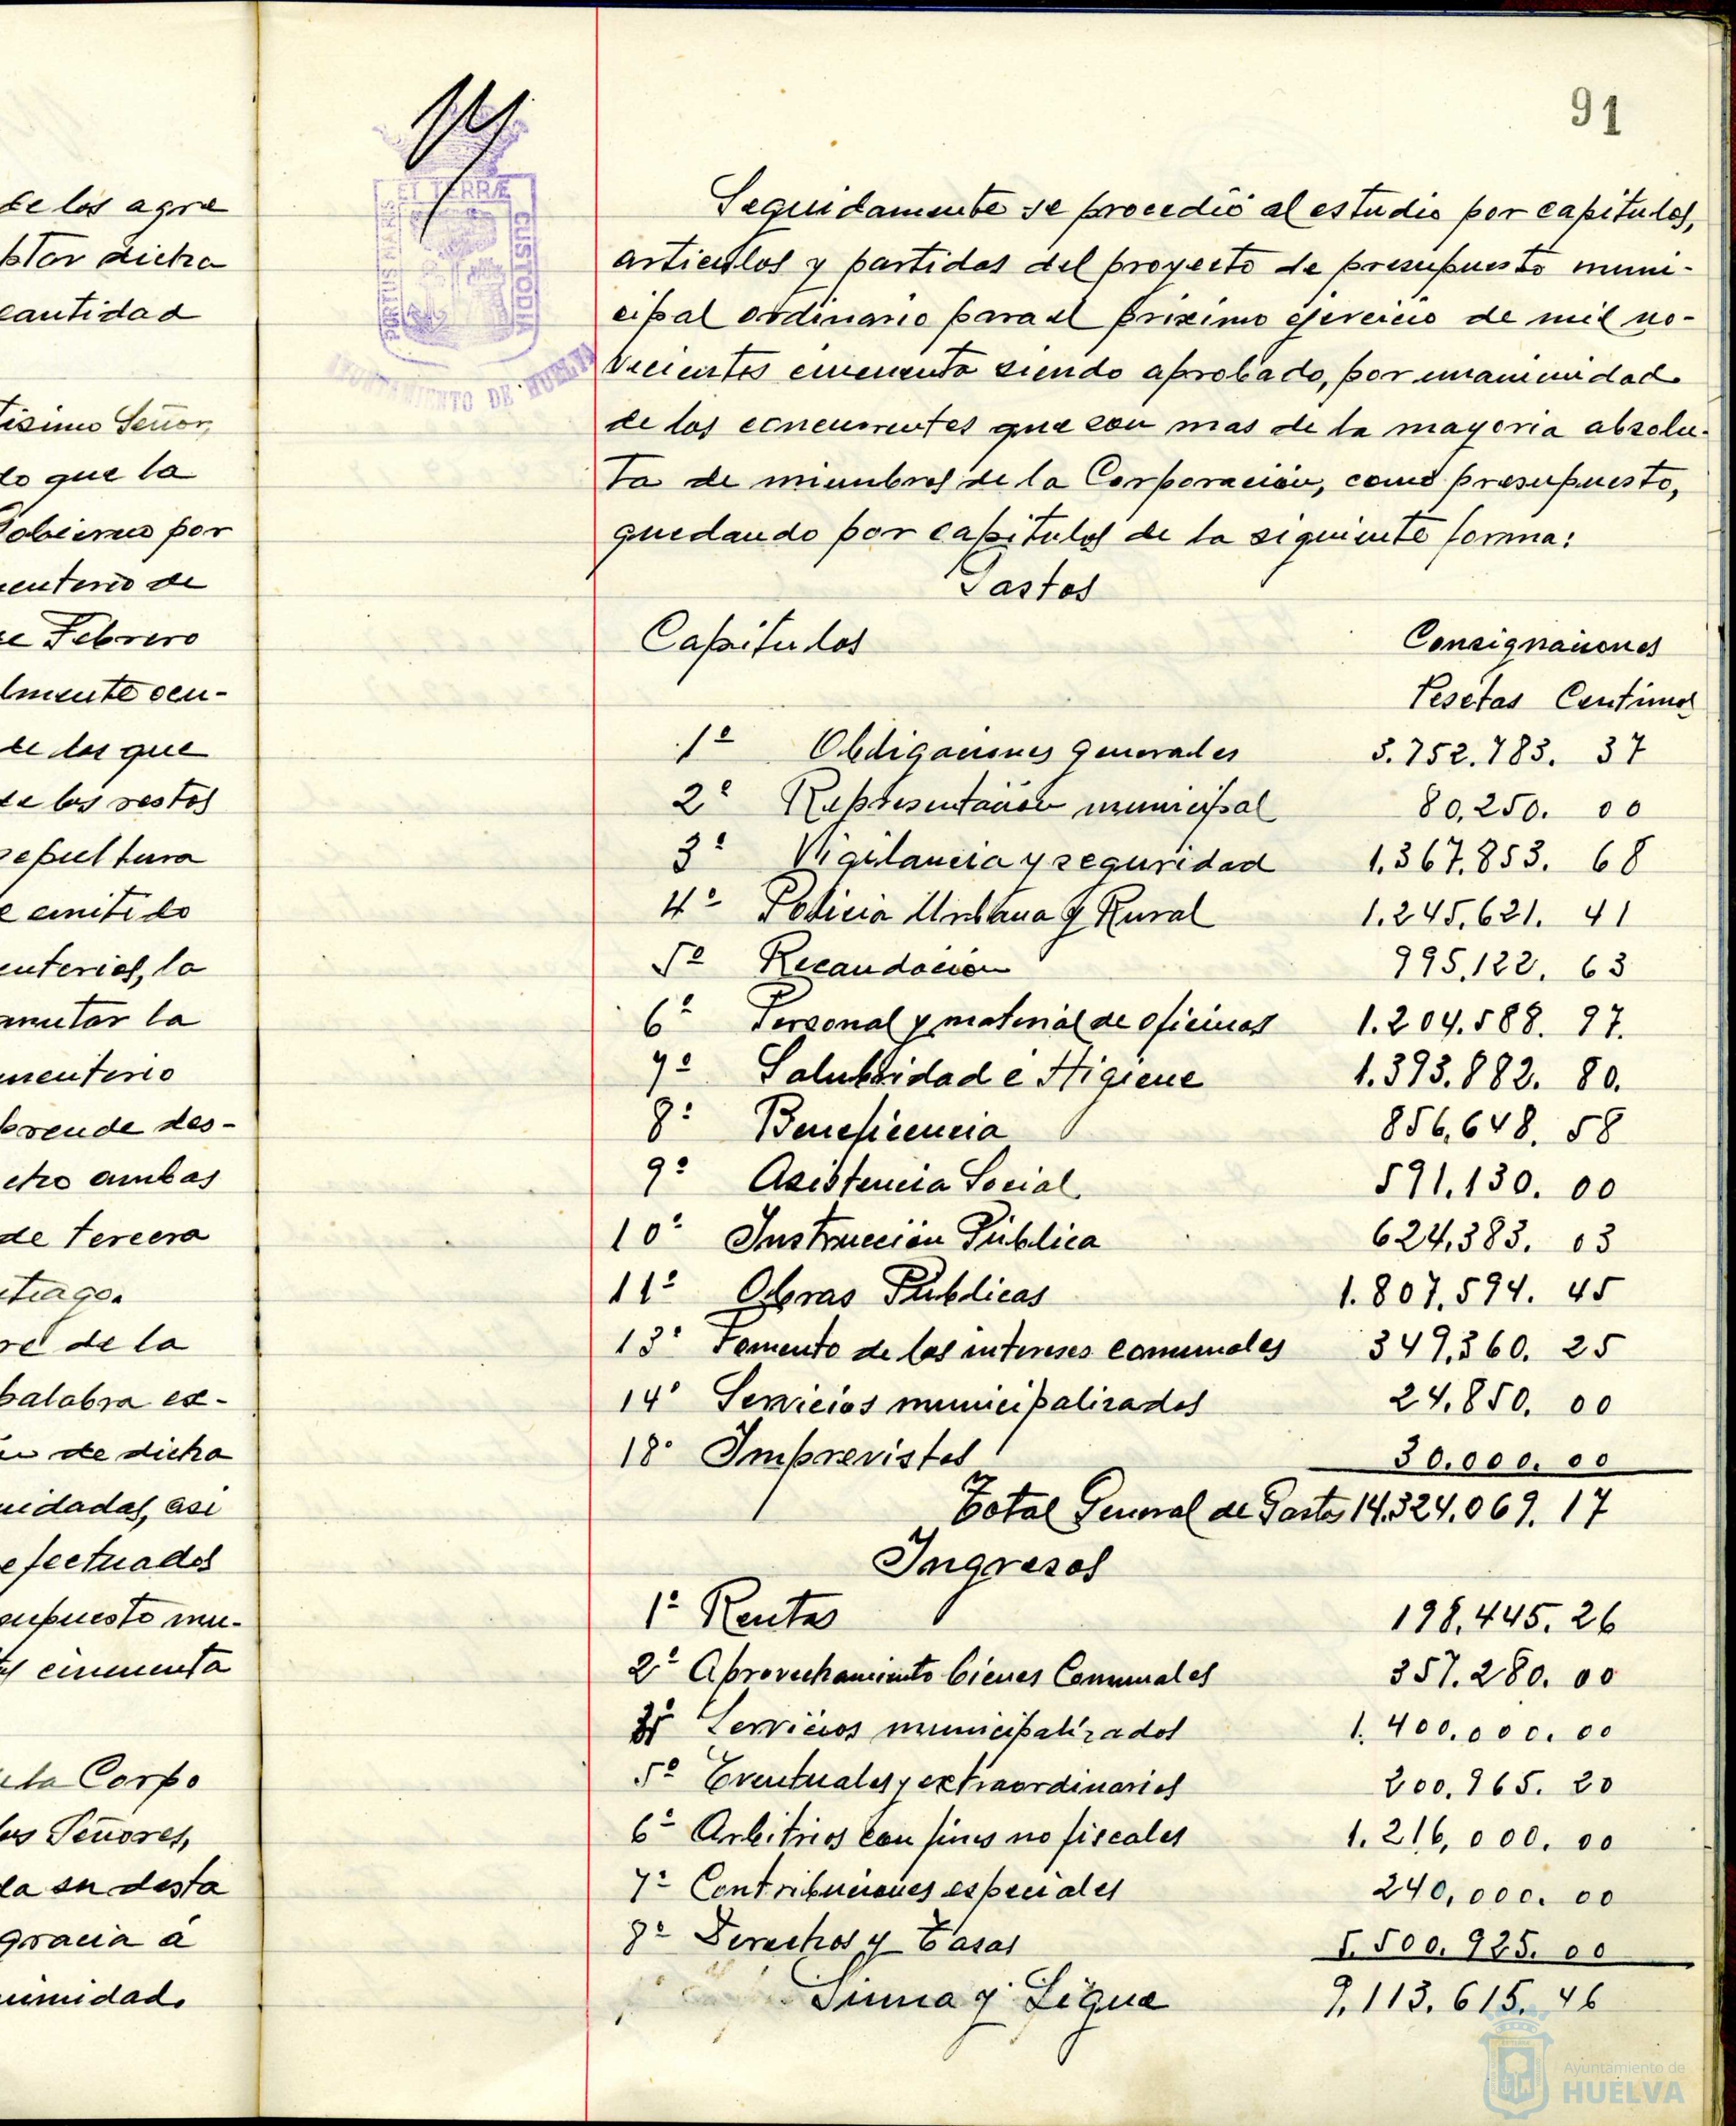 de los agra
ptor dicha
cantidad
tisimo Señor,
lo que la
Gobierno por
menterio de
de Febrero
lmente ocu-
de los que
de los restos
sepultura
e emitido
enterios, la
mutar la
menterio
prende des-
cho ambas
de tercera
tiago.
re de la
palabra ex-
de dicha
uidadas, asi
efectuados
supuesto mu-
cincuenta
esta Corpo
los Señores,
la su desta
gracia á
nimidad.
91
ET TERRÆ
CUSTODIA
PORTUS MARIS
AYUNTAMIENTO DE HUELVA
Seguidamente se procedió al estudio por capitulos,
articulos y partidas del proyecto de presupuesto muni-
cipal ordinario para el próximo ejercicio de mil no-
vecientos cincuenta siendo aprobado, por unanimidad
de los concurrentes que son mas de la mayoria absolu-
ta de miembros de la Corporación, como presupuesto,
quedando por capitulos de la siguiente forma:
Gastos
Capitulos Consignaciones
Pesetas Centimos
1º Obligaciones generales 3.752.783. 37
2º Representación municipal 80.250. 00
3º Vigilancia y seguridad 1.367.853. 68
4º Policia Urbana y Rural 1.245.621. 41
5º Recaudacion 995.122. 63
6º Personal y material de oficinas 1.204.588. 97.
7º Salubridad e Higiene 1.393.882. 80.
8º Beneficencia 856.648. 58
9º Asistencia Social. 591.130. 00
10º Instrucción Pública 624.383. 03
11º Obras Públicas 1.807.594. 45
13º Fomento de los intereses comunales 349.360. 25
14º Servicios municipalizados 24.850. 00
18º Imprevistos 30.000. 00
Total General de Gastos 14.324.069. 17
Ingresos
1º Rentas 198.445. 26
2º Aprovechamiento bienes Comunales 357.280. 00
3º Servicios municipalizados 1.400.000. 00
5º Eventuales y extraordinarios 200.965. 20
6º Arbitrios con fines no fiscales 1.216.000. 00
7º Contribuciones especiales 240.000. 00
8º Derechos y Tasas 5.500.925. 00
Suma y Sigue 9.113.615. 46
Ayuntamiento de
HUELVA